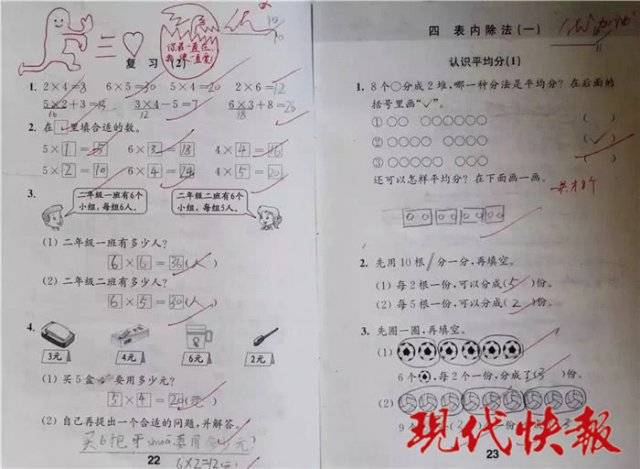 复 习 (2)
1. 2×4=8 6×5=30 5×4=20 2×6=12
5×2+3=13 3×4-5=7 6×3+8=26
10 12 18
2. 在□里填合适的数。
5×1=5 6×3=18 4×4=16
5×2=10 6×4=24 4×5=20
3.
二年级一班有6个小组,每组6人。
二年级二班有6个小组,每组5人。
(1) 二年级一班有多少人?
6×6=36(人)
(2) 二年级二班有多少人?
6×5=30(人)
4.
3元 4元 6元 2元
(1) 买5盒 要用多少元?
5×4=20(元)
(2) 自己再提出一个合适的问题,并解答。
买6把牙
6×2=12
22
四 表内除法(一)
认识平均分(1)
1. 8个○分成2堆,哪一种分法是平均分?在后面的
括号里画“✓”。
① ( )
② (✓)
③ ( )
还可以怎样平均分?在下面画一画。
共才8个
2. 先用10根 分一分,再填空。
(1) 每2根一份,可以分成(5)份。
(2) 每5根一份,可以分成(2)份。
3. 先圈一圈,再填空。
(1)
6个 ,每2个一份,分成
(2)
9
23
现代快報